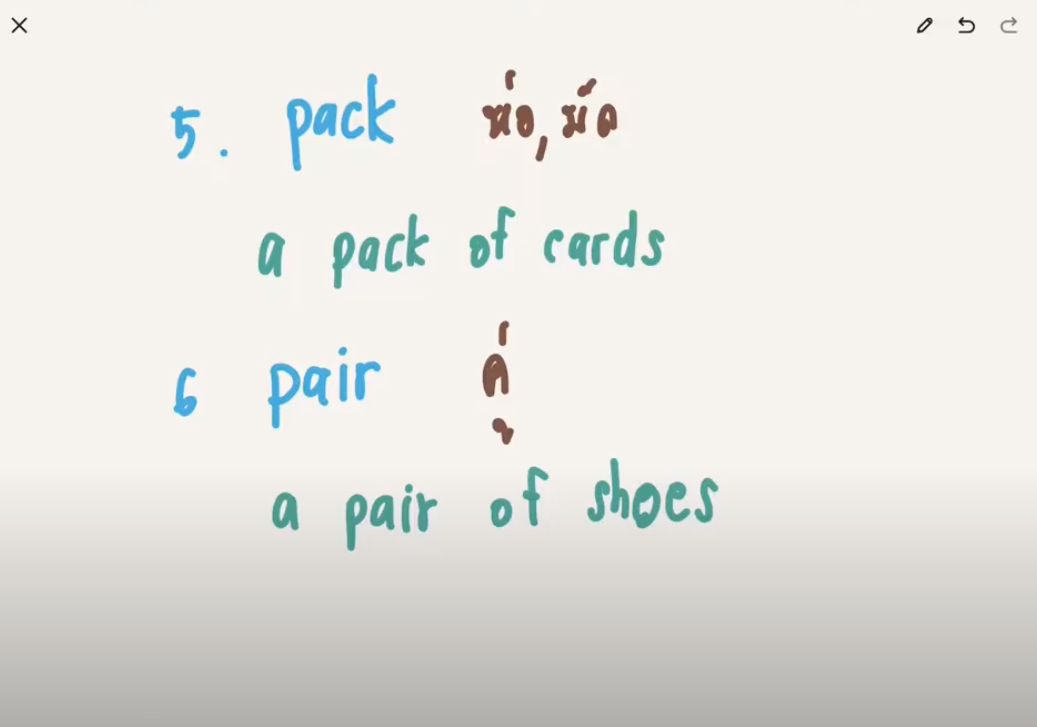 5. pack ห่อ, มัด
a pack of cards
6 pair คู่
a pair of shoes